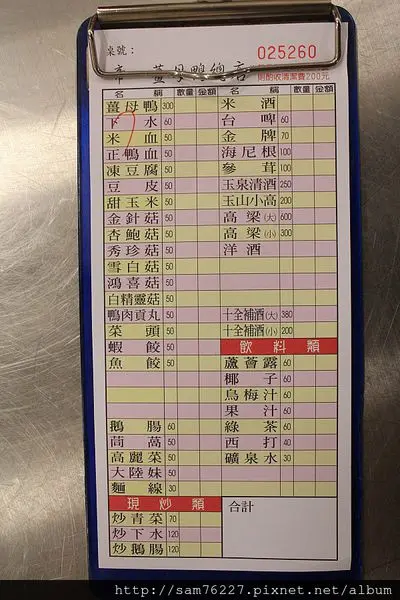 桌號：
025260
帝 薑母鴨總店
則酌收清潔費200元
名 稱 數量 金額 名 稱 數量 金額
薑母鴨 300
下水 60
米血 50
正鴨血 50
凍豆腐 50
豆皮 50
甜玉米 50
金針菇 50
杏鮑菇 50
秀珍菇 50
雪白菇 50
鴻喜菇 50
白精靈菇 50
鴨肉貢丸 50
菜頭 50
蝦餃 50
魚餃 50
鵝腸 60
茼萵 50
高麗菜 50
大陸妹 50
麵線 30
現炒類
炒青菜 70
炒下水 120
炒鵝腸 120
米酒
台啤 60
金牌 70
海尼根 100
參茸 100
玉泉清酒 250
玉山小高 200
高粱(大) 600
高粱(小) 300
洋酒
十全補酒(大) 380
十全補酒(小) 200
飲料類
蘆薈露 60
椰子 60
烏梅汁 60
果汁 60
綠茶 60
西打 40
礦泉水 30
合計
http://sam76227.pixnet.net/album